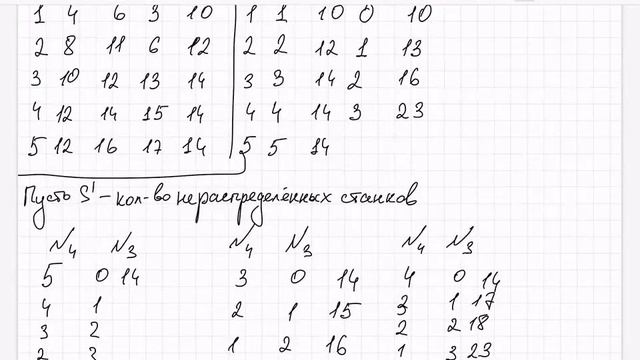 1 4 6 3 10 1 1 10 0 10
2 8 11 6 12 2 2 12 1 13
3 10 12 13 14 3 3 14 2 16
4 12 14 15 14 4 4 14 3 23
5 12 16 17 14 5 5 14
Пусть S' – кол-во нераспределённых станков
N4 N3 N4 N3 N4 N3
5 0 14 3 0 14 4 0 14
4 1 2 1 15 3 1 17
3 2 1 2 16 2 2 18
2 3 1 3 23